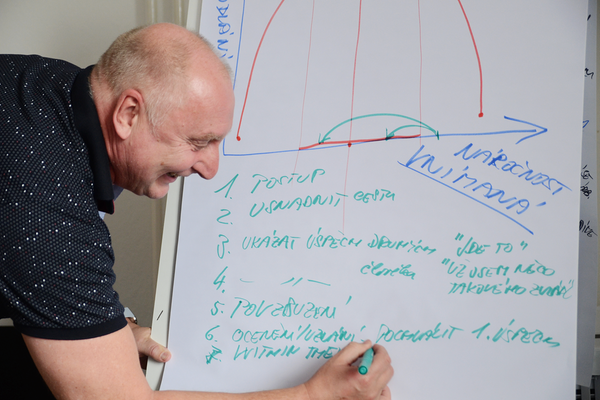 NÁROČNOST
VNÍMANÁ
1. POSTUP
2. USNADNIT CESTU
3. UKÁZAT ÚSPĚCH DRUHÝCH "JDE TO"
4. – " – člověka "UŽ JSEM NĚCO
TAKOVÉHO ZVLÁDL"
5. POVZBUZENÍ
6. OCENĚNÍ/UZNÁNÍ 1. ÚSPĚCH
7. WITHIN THE